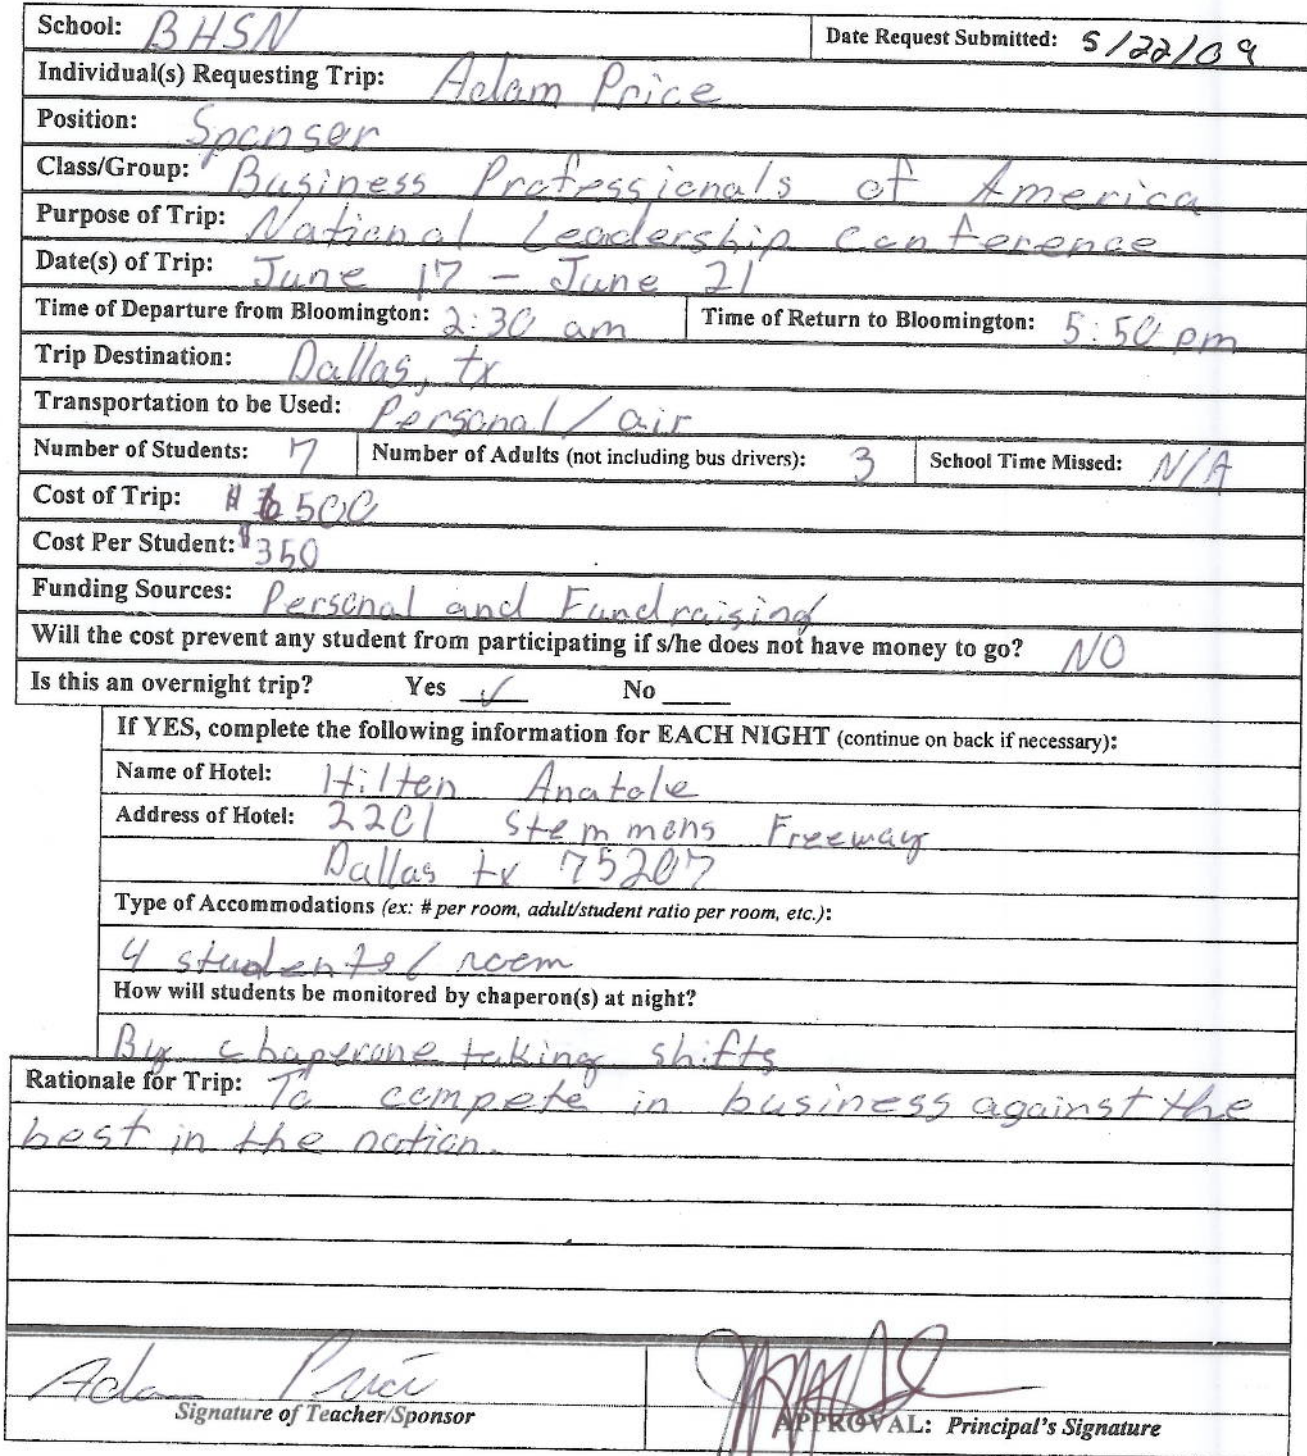 School: BHSN Date Request Submitted: 5/22/09
Individual(s) Requesting Trip: Adam Price
Position: Sponsor
Class/Group: Business Professionals of America
Purpose of Trip: National Leadership Conference
Date(s) of Trip: June 17 - June 21
Time of Departure from Bloomington: 2:30 am Time of Return to Bloomington: 5:50 pm
Trip Destination: Dallas, tx
Transportation to be Used: Personal / air
Number of Students: 7 Number of Adults (not including bus drivers): 3 School Time Missed: N/A
Cost of Trip: $ 6500
Cost Per Student: $350
Funding Sources: Personal and Fundraising
Will the cost prevent any student from participating if s/he does not have money to go? NO
Is this an overnight trip? Yes ✓ No
If YES, complete the following information for EACH NIGHT (continue on back if necessary):
Name of Hotel: Hilton Anatole
Address of Hotel: 2201 Stemmons Freeway
Dallas tx 75207
Type of Accommodations (ex: # per room, adult/student ratio per room, etc.):
4 students / room
How will students be monitored by chaperon(s) at night?
By chaperone taking shifts
Rationale for Trip: To compete in business against the
best in the nation.
Adam Price
Signature of Teacher/Sponsor APPROVAL: Principal's Signature